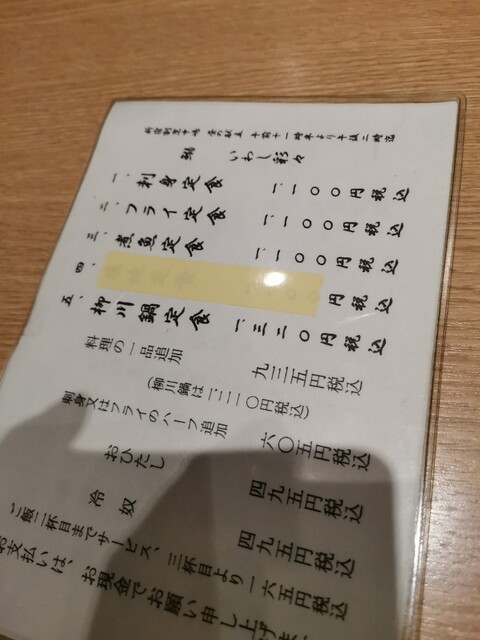 新宿割烹中嶋 昼の献立 午前十一時半より午後二時迄
鰯 いわし彩々
一、刺身定食 一、一〇〇円税込
二、フライ定食 一、一〇〇円税込
三、煮魚定食 一、一〇〇円税込
四、 円税込
五、柳川鍋定食 一、三二〇円税込
料理の一品追加 九三五円税込
(柳川鍋は一、二一〇円税込)
刺身又はフライのハーフ追加 六〇五円税込
おひたし 四九五円税込
冷奴 四九五円税込
ご飯二杯目までサービス、三杯目より一六五円税込
お支払いは、お現金でお願い申し上げま